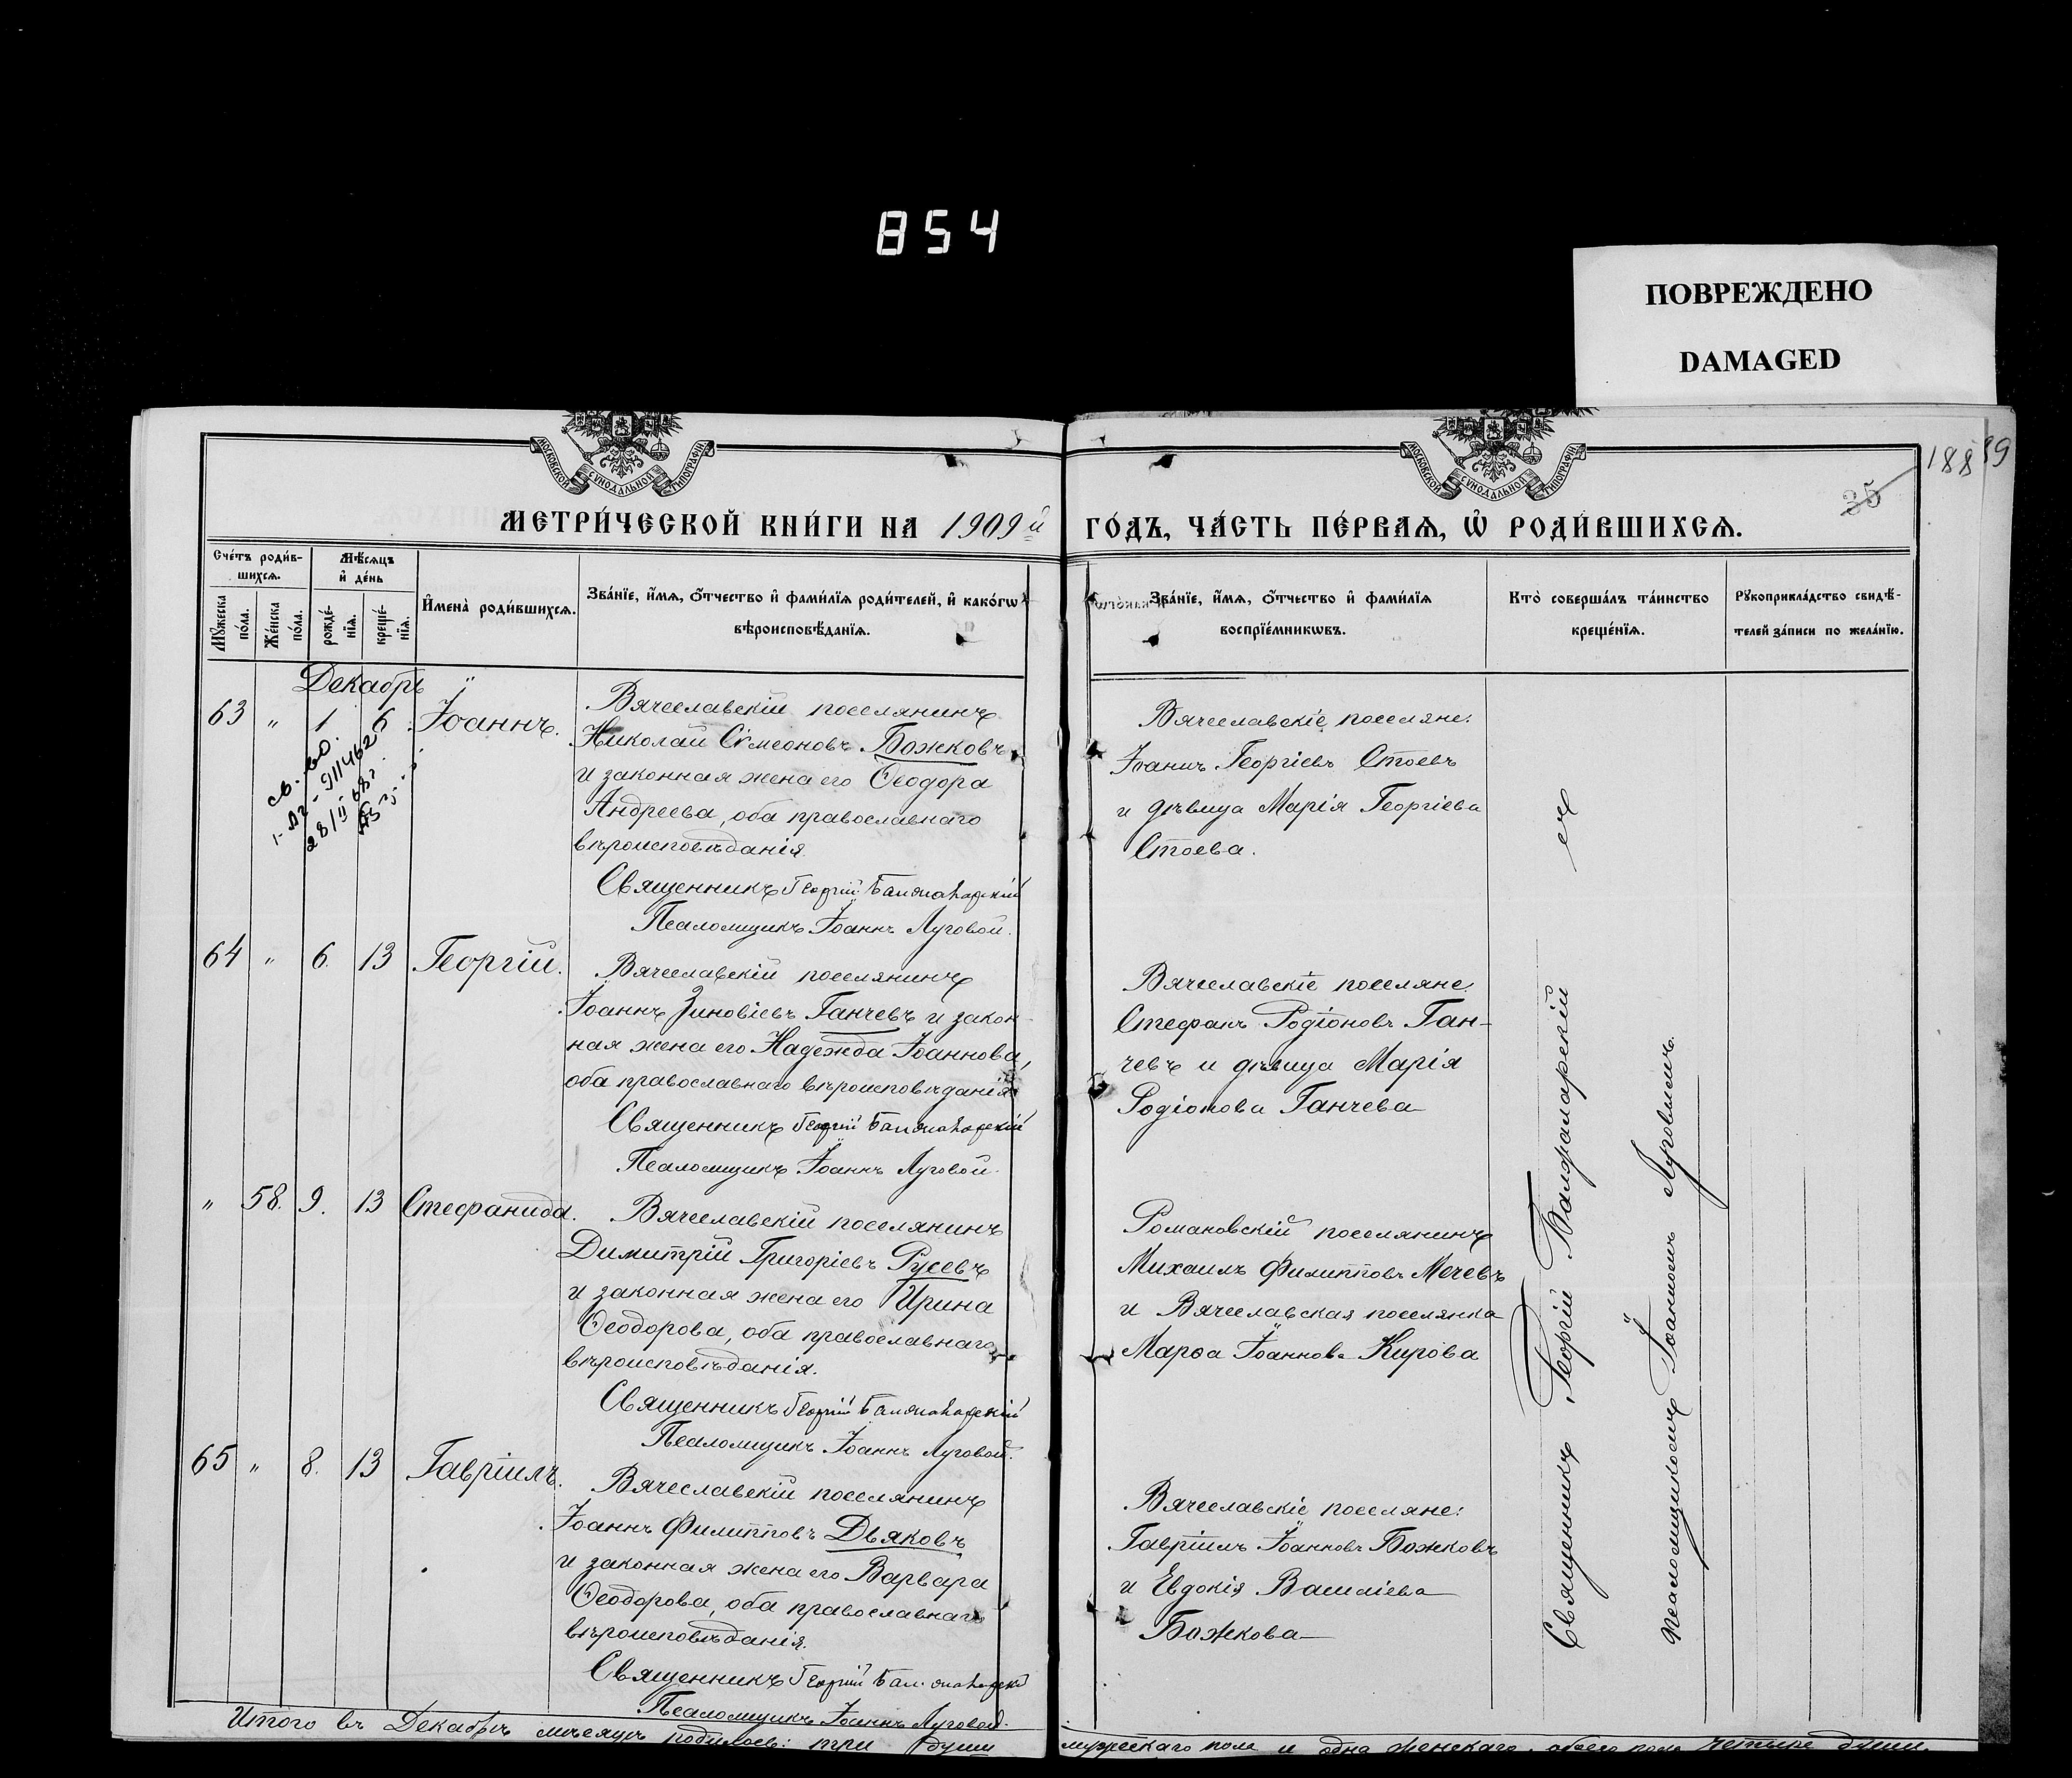 854
ПОВРЕЖДЕНО
DAMAGED
МОСКОВСКОЙ СѴНОДАЛЬНОЙ ТИПОГРАФІИ
МОСКОВСКОЙ СѴНОДАЛЬНОЙ ТИПОГРАФІИ
35
188
МЕТРИ́ЧЕСКОЙ КНИ́ГИ НА 1909й ГО́ДЪ, ЧА́СТЬ ПЕ́РВАѦ, Ѽ РОДИ́ВШИХСѦ.
Сче́тъ роди́в-
шихсѧ.
Мꙋ́жеска по́ла.
Же́нска по́ла.
Мѣ́сѧцъ
и҆ де́нь
рожде́-
нїѧ.
креще́-
нїѧ.
И҆мена̀ роди́вшихсѧ.
Зва́нїе, и҆́мѧ, ѻ҆́тчество и҆ фами́лїѧ роди́телей, и҆ како́гѡ
вѣроисповѣ́данїѧ.
Зва́нїе, и҆́мѧ, ѻ҆́тчество и҆ фами́лїѧ
воспрїе́мникѡвъ.
Кто̀ соверша́лъ та́инство
креще́нїѧ.
Рꙋкоприкла́дство свидѣ́-
телей за́писи по жела́нїю.
Декабрь
63 " 1 6 Іоаннъ.
св.-во.
28/II 68г.
Вячеславскій поселянинъ
Николай Сѵмеоновъ Божковъ
и законная жена его Ѳеодора
Андреева, оба православнаго
вѣроисповѣданія.
Священникъ Георгій
Псаломщикъ Іоаннъ Луговой.
Вячеславскіе поселяне:
Іоаннъ Георгіевъ Стоевъ
и дѣвица Марія Георгіева
Стоева.
64 " 6. 13 Георгій.
Вячеславскій поселянинъ
Іоаннъ Зиновіевъ Ганчевъ и закон-
ная жена его Надежда Іоаннова,
оба православнаго вѣроисповѣданія.
Священникъ Георгій
Псаломщикъ Іоаннъ Луговой.
Вячеславскіе поселяне:
Стефанъ Родіоновъ Ган-
чевъ и дѣвица Марія
Родіонова Ганчева
" 58. 9. 13 Стефанида.
Вячеславскій поселянинъ
Димитрій Григоріевъ Русевъ
и законная жена его Ирина
Ѳеодорова, оба православнаго
вѣроисповѣданія.
Священникъ Георгій
Псаломщикъ Іоаннъ Луговой.
Романовскій поселянинъ
Михаилъ Филипповъ Мечевъ
и Вячеславская поселянка
Марѳа Іоаннова Кирова
65 " 8. 13 Гавріилъ.
Вячеславскій поселянинъ
Іоаннъ Филипповъ Дьяковъ
и законная жена его Варвара
Ѳеодорова, оба православнаго
вѣроисповѣданія.
Священникъ Георгій
Псаломщикъ Іоаннъ Луговой.
Вячеславскіе поселяне:
Гавріилъ Іоанновъ Божковъ
и Евдокія Василіева
Божкова
Священникъ Георгій
съ
Псаломщикомъ Іоанномъ Луговымъ.
Итого въ Декабрѣ мѣсяцѣ родилось: три души мужескаго пола и одна женскаго, обоего пола четыре души.